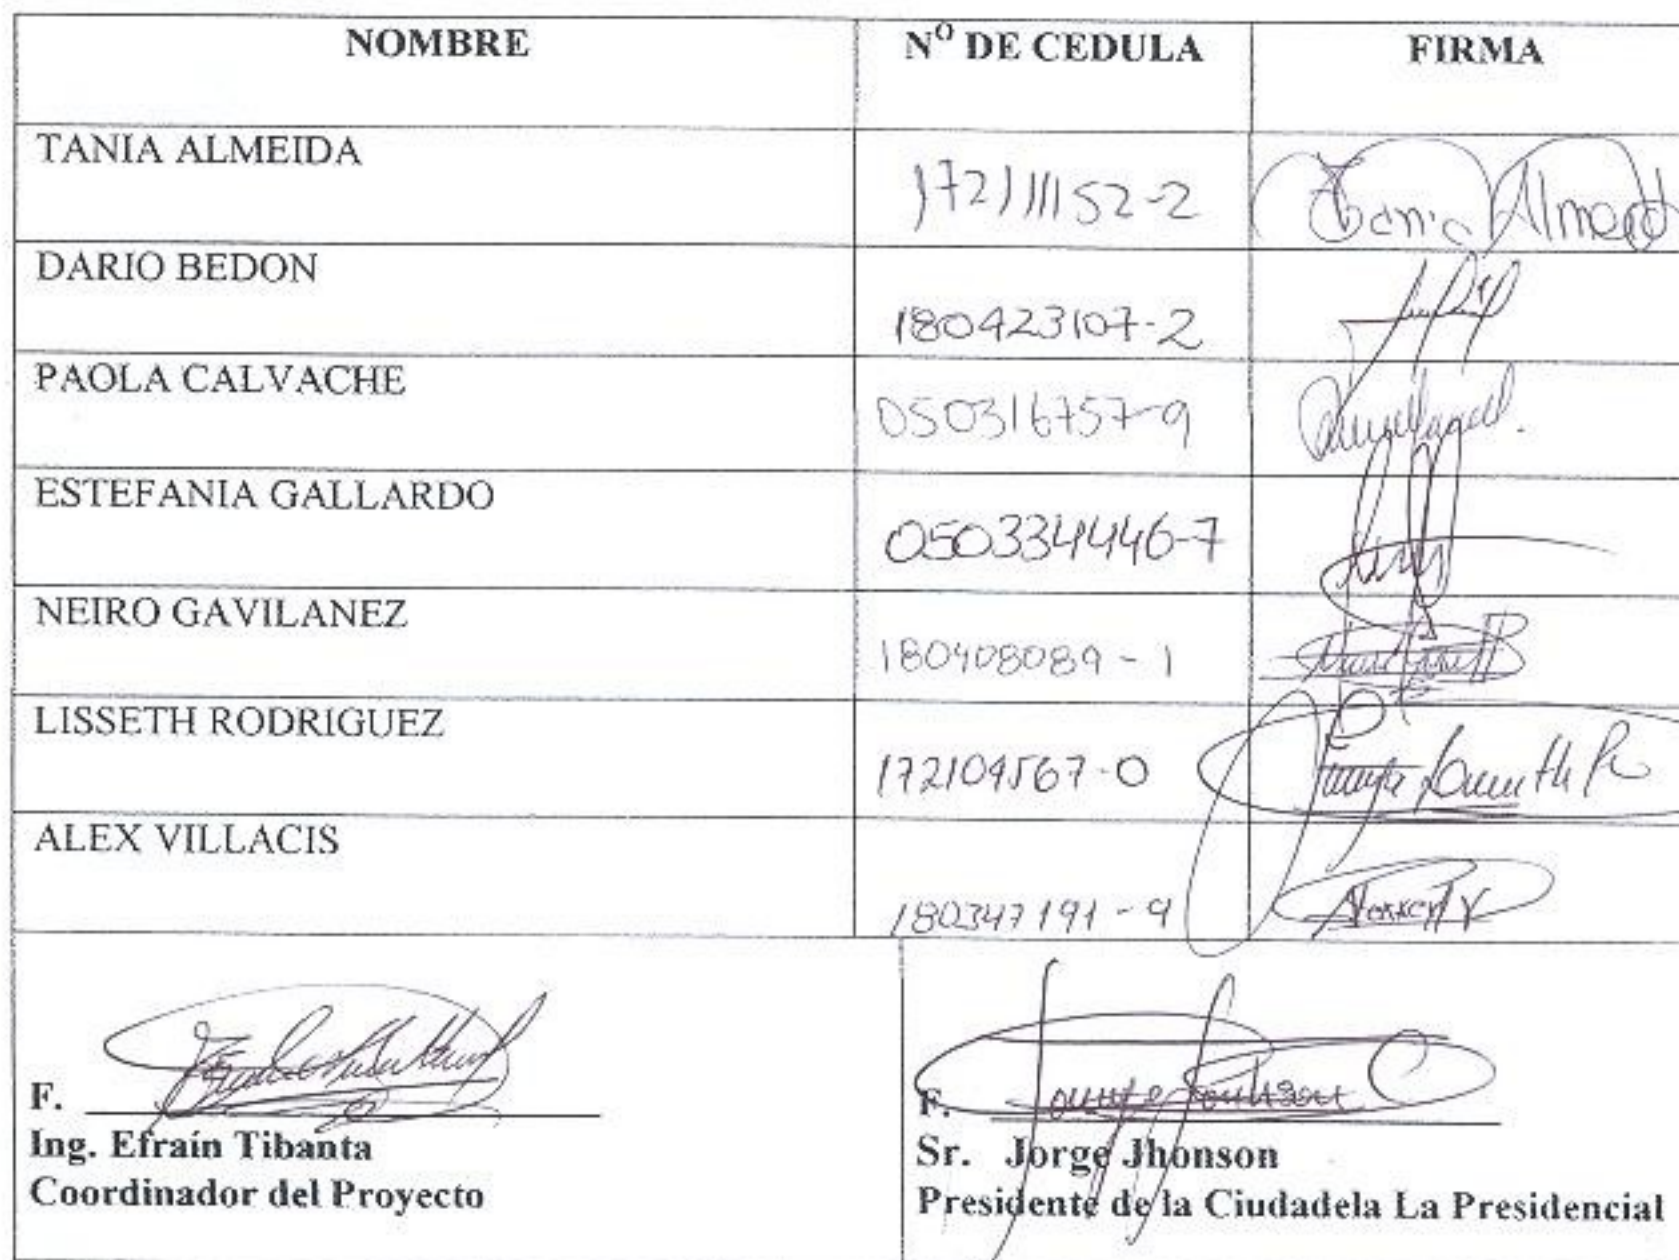 NOMBRE Nº DE CEDULA FIRMA
TANIA ALMEIDA 172111152-2 Tania Almeid
DARIO BEDON 180423107-2
PAOLA CALVACHE 050316757-9
ESTEFANIA GALLARDO 050334446-7
NEIRO GAVILANEZ 180408089-1
LISSETH RODRIGUEZ 172104567-0
ALEX VILLACIS 180347191-9
F. F.
Ing. Efraín Tibanta Sr. Jorge Jhonson
Coordinador del Proyecto Presidente de la Ciudadela La Presidencial